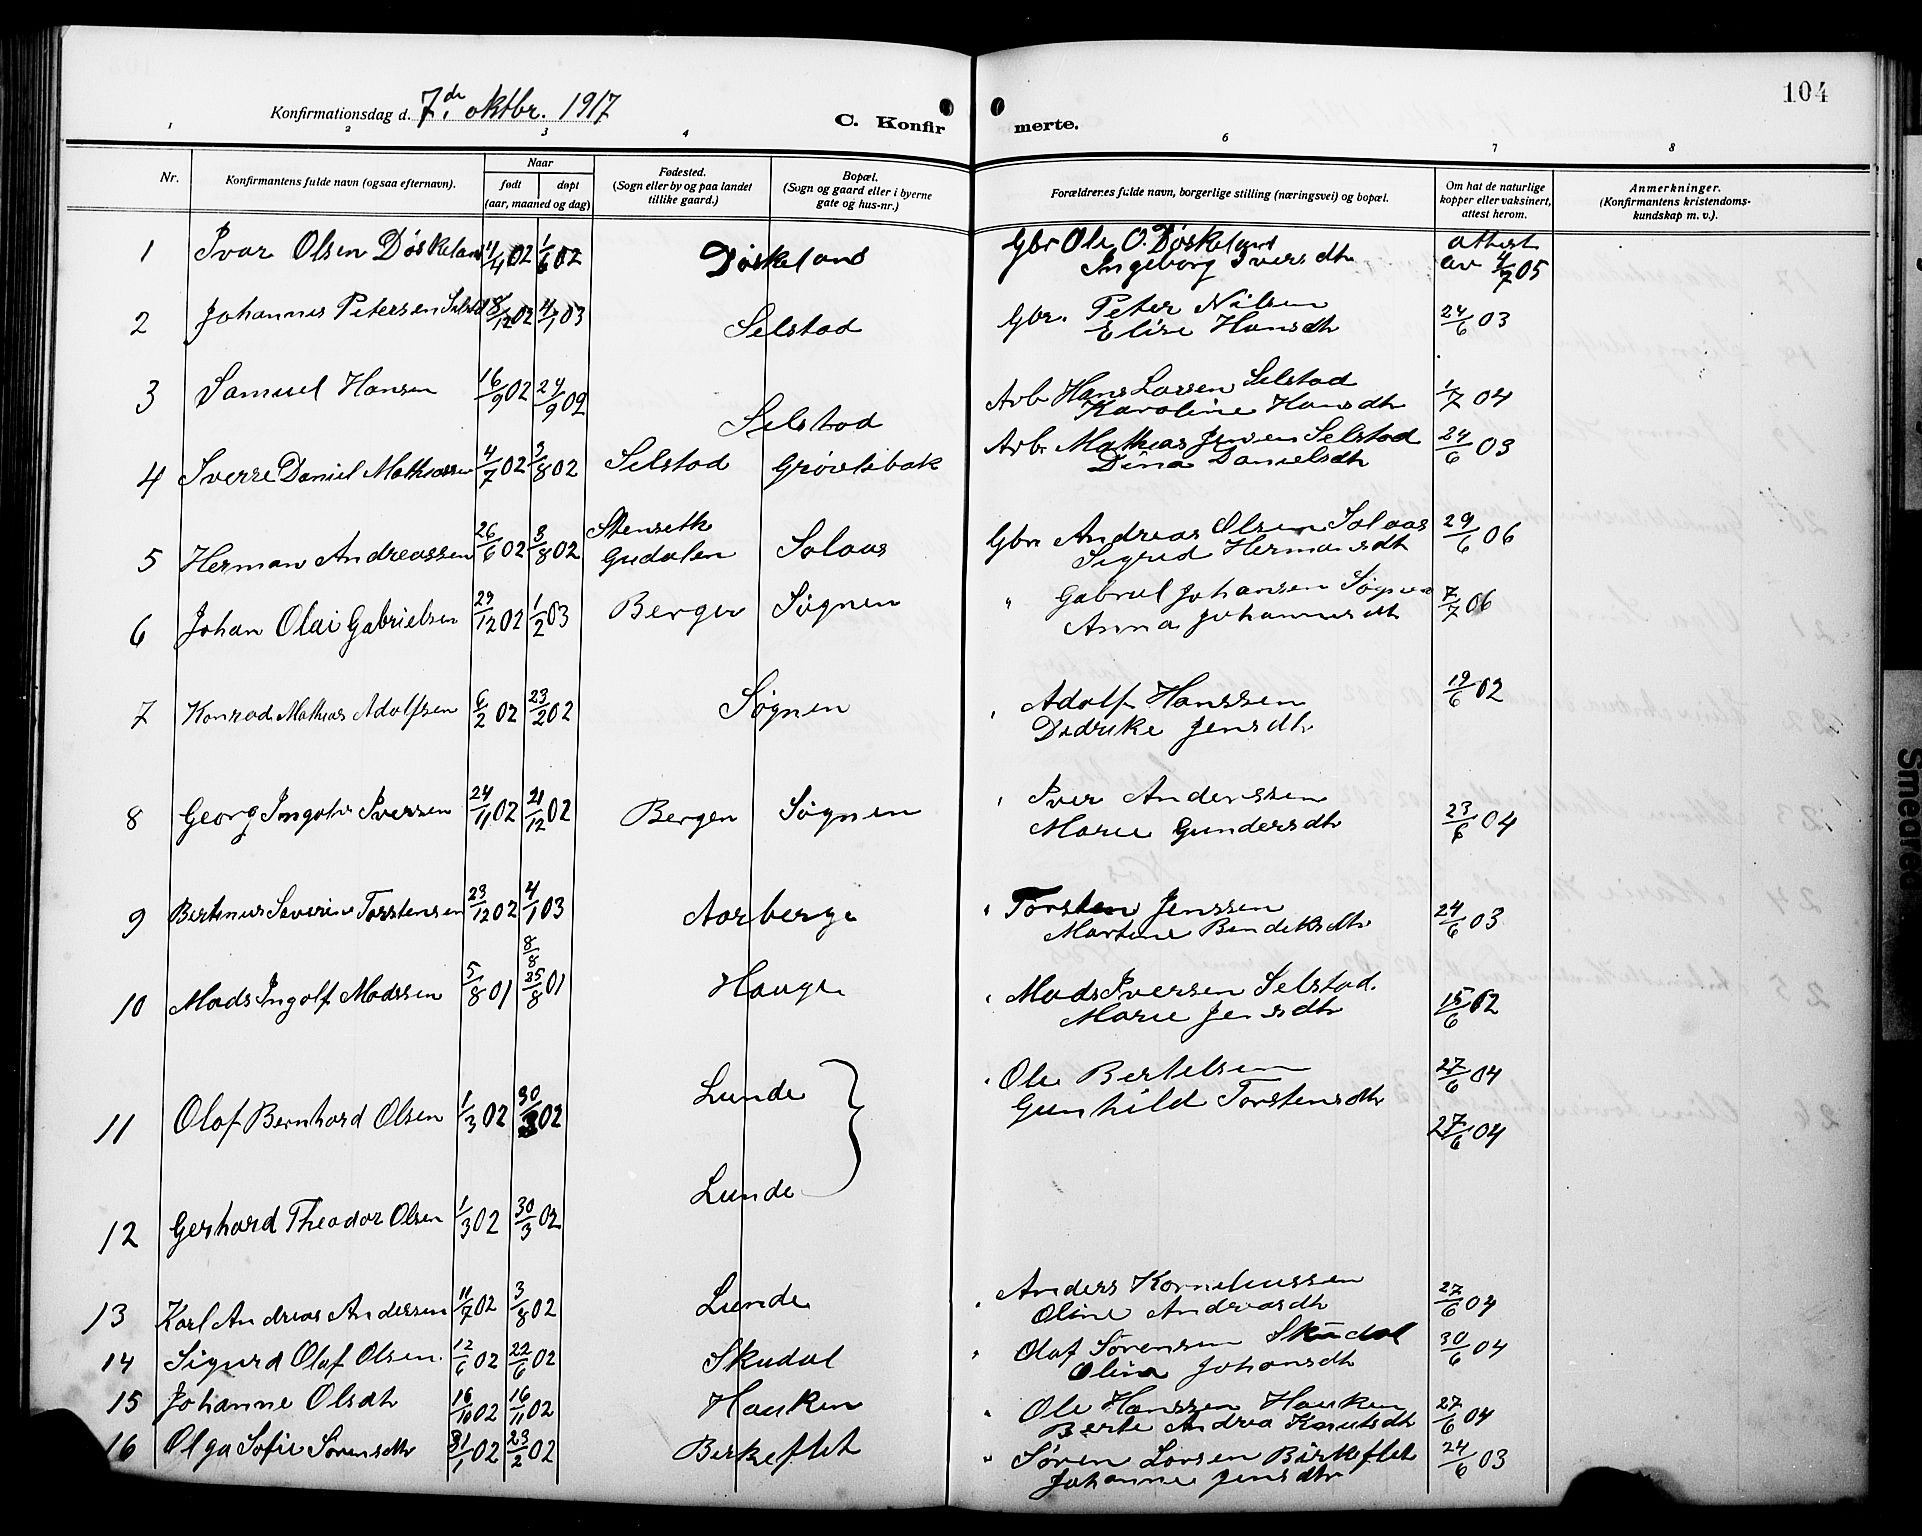 104
Konfirmationsdag d. 7de oktbr. 1917
C. Konfirmerte.
1 2 3 4 6 7 8
Nr. Konfirmantens fulde navn (ogsaa efternavn). Naar født døpt (aar, maaned og dag) Fødested. (Sogn eller by og paa landet tillike gaard.) Bopæl. (Sogn og gaard eller i byerne gate og hus-nr.) Forældrenes fulde navn, borgerlige stilling (næringsvei) og bopæl. Om hat de naturlige kopper eller vaksinert, attest herom. Anmerkninger. (Konfirmantens kristendomskundskap m. v.).
1 Ivar Olsen Døskeland 11/4 02 1/6 02 Døskeland Gbr Ole O. Døskeland attest
Ingeborg Iversdtr av 4/7 05
2 Johannes Petersen Selstad 18/12 02 4/1 03 Selstad Gbr. Peter Nilsen 24/6 03
Elise Hansdtr
3 Samuel Hansen 16/9 02 24/9 02 Selstad Arb Hans Larsen Selstad 1/7 04
Karoline Hansdtr
4 Sverre Daniel Mathiassen 4/7 02 3/8 02 Selstad Grøvlebak Arb. Mathias Jensen Selstad 24/6 03
Dina Danielsdtr
5 Herman Andreassen 26/6 02 3/8 02 Stenseth Gudalen Solaas Gbr Andreas Olsen Solaas 29/6 06
Sigrid Hermansdtr
6 Johan Olai Gabrielsen 29/12 02 1/2 03 Berger Søgnen " Gabriel Johansen Søgnen 7/7 06
Anna Johannesdtr
7 Konrad Mathias Adolfsen 6/2 02 23/2 02 Søgnen " Adolf Hanssen 19/6 02
Didrike Jensdtr
8 Georg Ingolv Iversen 24/11 02 21/12 02 Bergen Søgnen " Iver Anderssen 23/6 04
Marie Gundersdtr
9 Bertinus Severin Torstensen 23/12 02 4/1 03 Aarberge " Torsten Jenssen 24/6 03
Martine Bendiksdtr
10 Mads Ingolf Madssen 5/8 01 8/8 25/8 01 Hauge " Mads Iversen Selstad. 15/6 02
Marie Jensdtr
11 Olaf Bernhard Olsen 1/3 02 30/3 02 Lunde " Ole Bertelsen 27/6 04
Gunhild Torstensdtr
27/6 04
12 Gerhard Theodor Olsen 1/3 02 30/3 02 Lunde
13 Karl Andreas Andersen 11/7 02 3/8 02 Lunde " Anders Korneliussen 27/6 04
Oline Andreasdtr
14 Sigurd Olaf Olsen. 12/6 02 22/6 02 Skudal " Olaf Sørensen Skudal 30/6 04
Olina Johansdtr
15 Johanne Olsdtr 16/10 02 16/11 02 Hauken " Ole Hanssen Hauken 27/6 04
Berte Andrea Knutsdtr
16 Olga Sofie Sørensdtr 31/1 02 23/2 02 Birkeflet " Søren Larsen Birkeflet 24/6 03
Johanne Jensdtr
Smeared